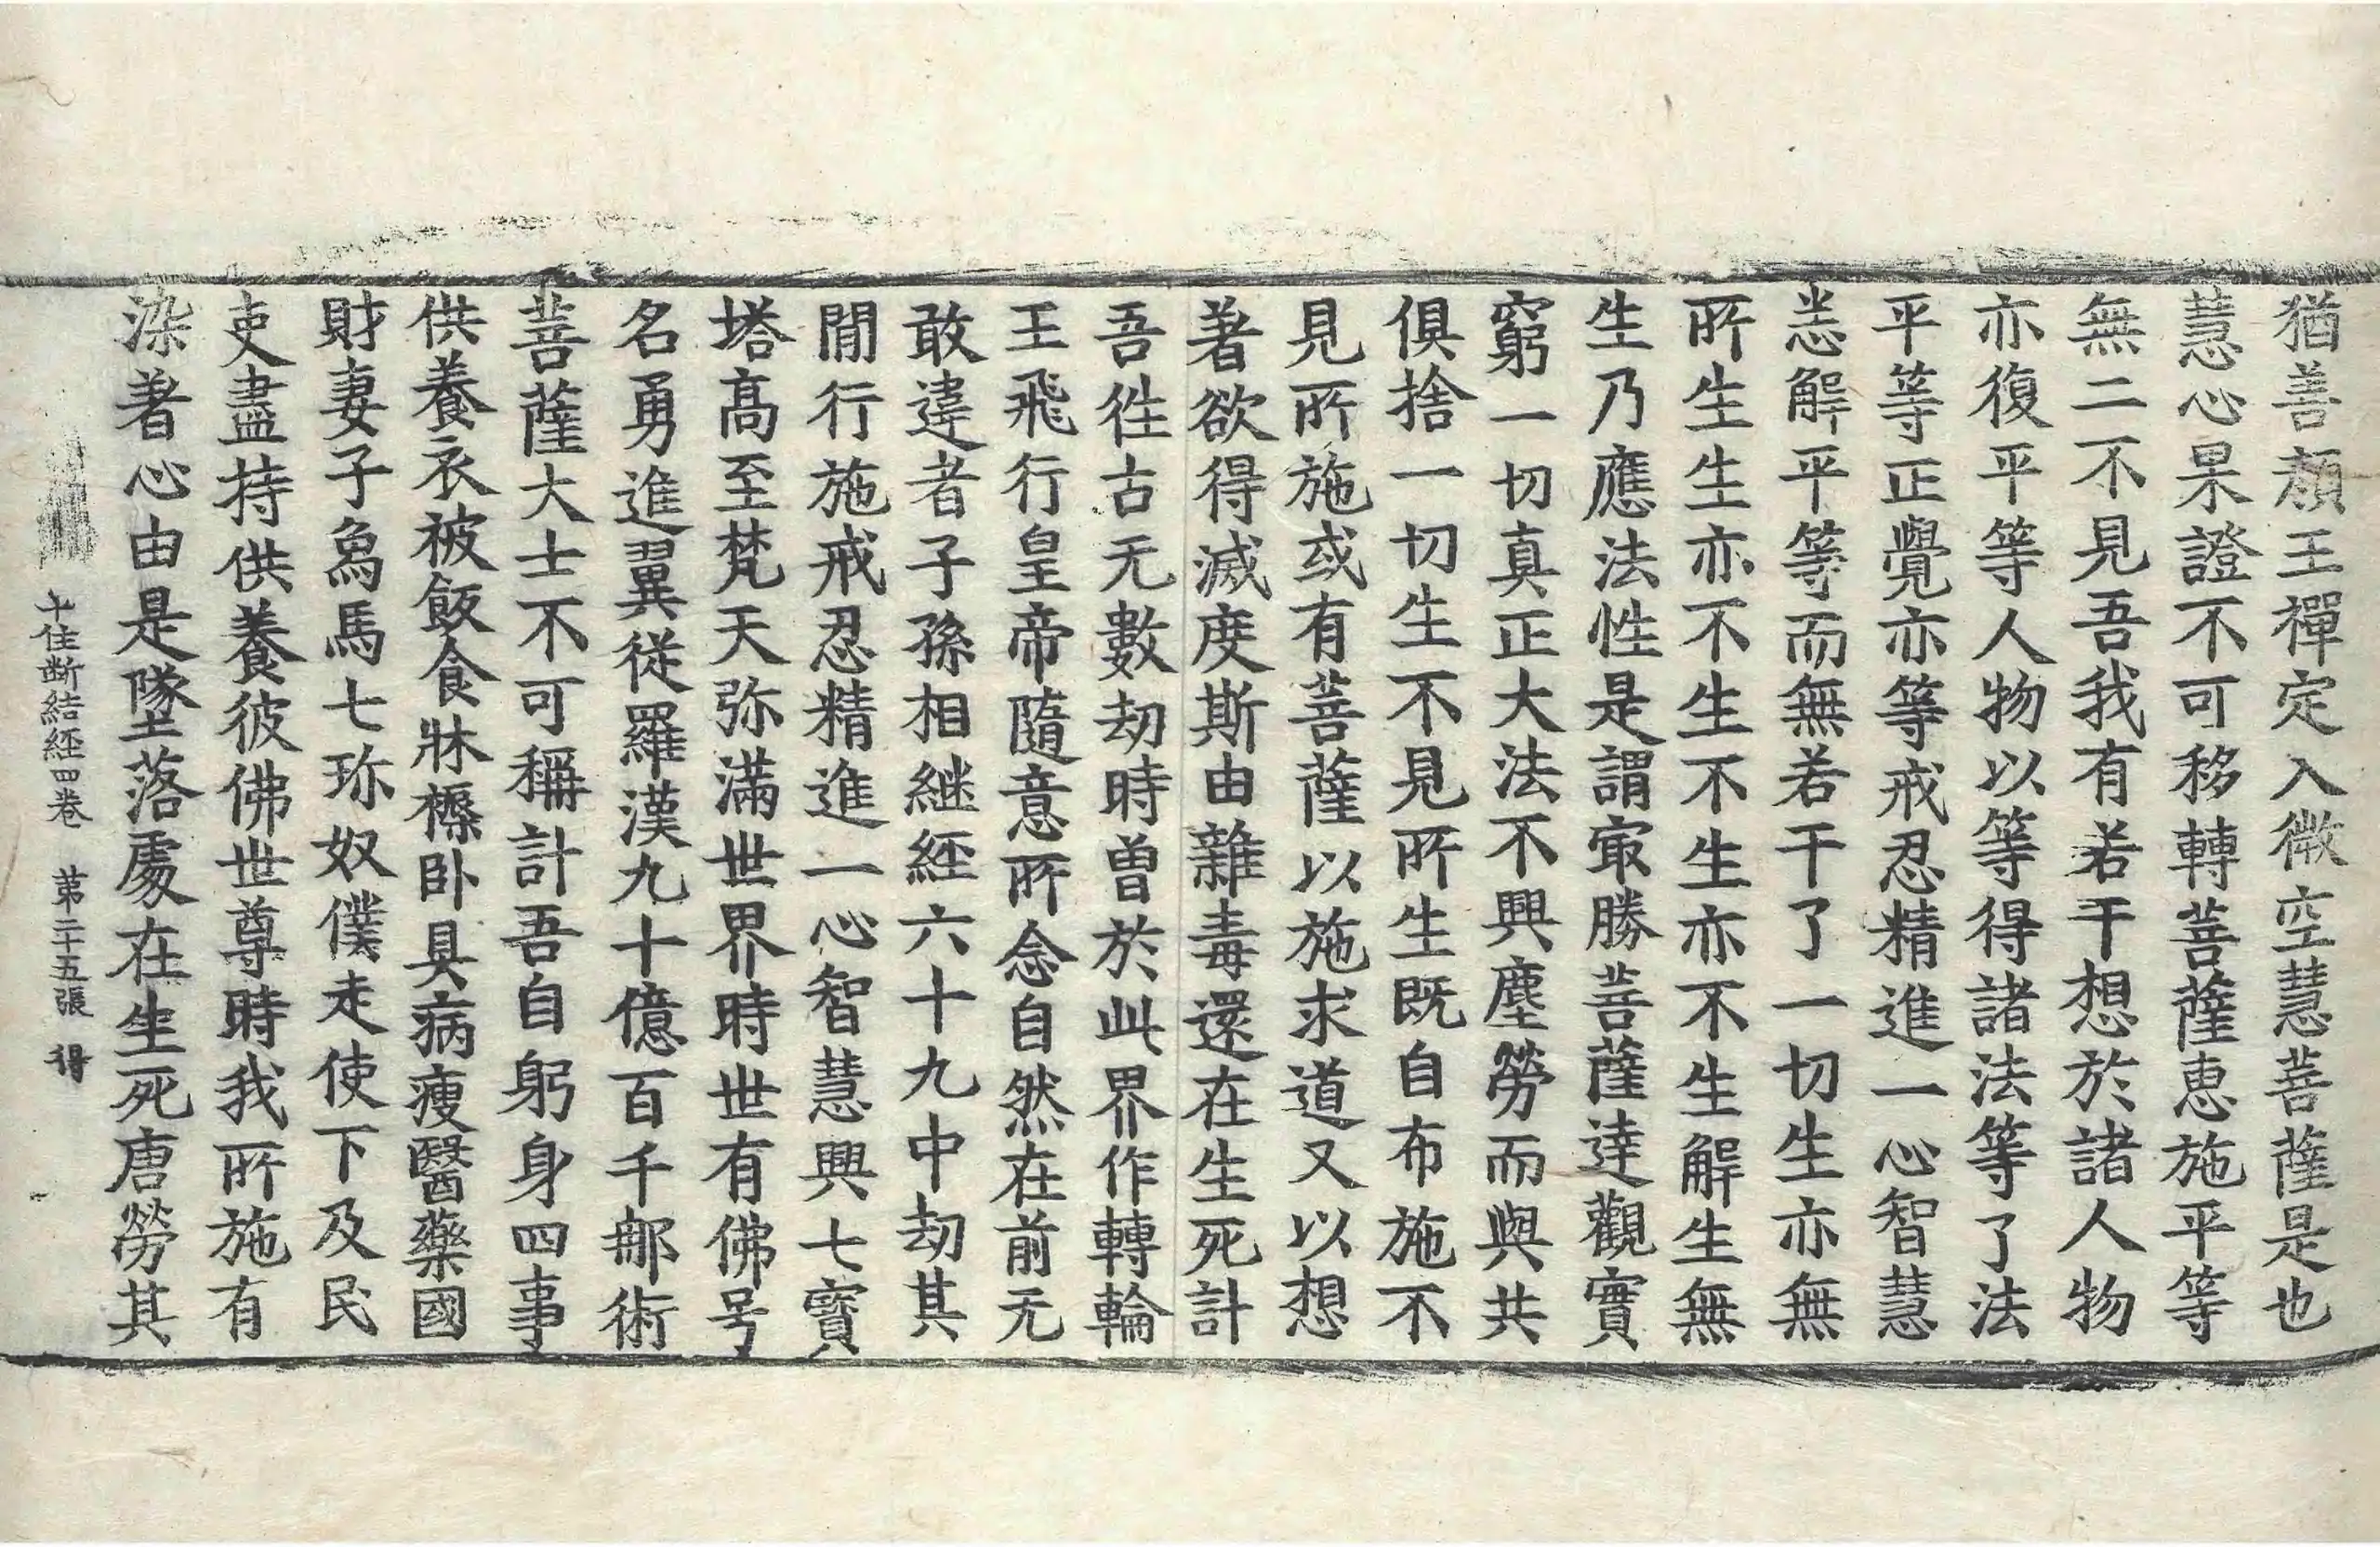 猶善顔王禪定入微空慧菩薩是也
慧心果證不可移轉菩薩惠施平等
無二不見吾我有若干想於諸人物
亦復平等人物以等得諸法等了法
平等正覺亦等戒忍精進一心智慧
悉解平等而無若干了一切生亦無
所生生亦不生不生亦不生解生無
生乃應法性是謂冣勝菩薩達觀實
窮一切真正大法不興塵勞而與共
俱捨一切生不見所生既自布施不
見所施或有菩薩以施求道又以想
著欲得滅度斯由雜毒還在生死計
吾徃古无數劫時曽於此界作轉輪
王飛行皇帝隨意所念自然在前无
敢違者子孫相継経六十九中劫其
閒行施戒忍精進一心智慧興七寳
塔高至梵天弥滿世界時世有佛号
名勇進翼從羅漢九十億百千那術
菩薩大士不可稱計吾自躬身四事
供養衣被飯食牀橝卧具病瘦醫藥國
財妻子象馬七珎奴僕走使下及民
吏盡持供養彼佛世尊時我所施有
染著心由是墜落處在生死唐勞其
十住断結経四卷　第二十五張　得